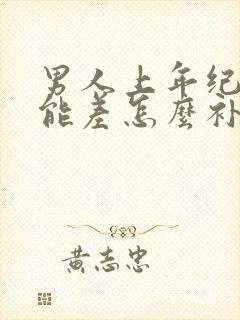 男人上年纪
能差怎麼补
黄志忠